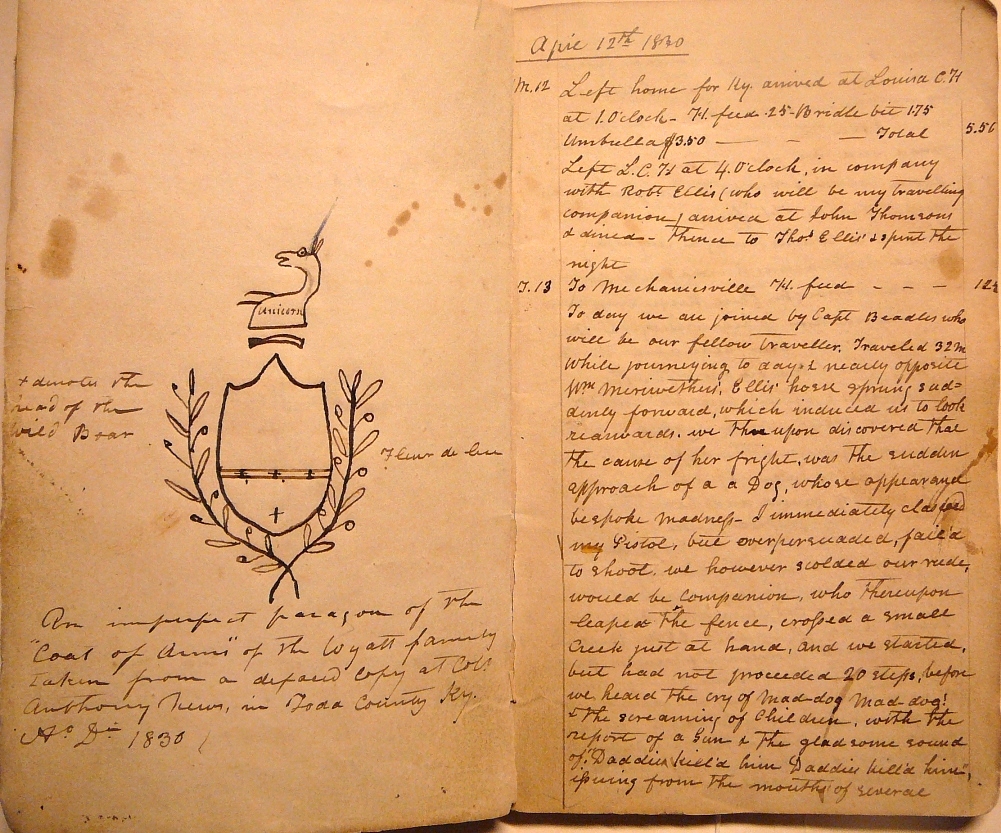 Unicorn
+ denotes the
head of the
Wild Boar
Fleur de luce
An imperfect paragon of the
"Coat of Arms" of the Wyatt family
taken from a defaced copy at Col:
Anthony News, in Todd County Ky.
Ao Di 1830
Apil 12th 1830
M. 12 Left home for Ky. arrived at Louisa C.H
at 1.O'clock - H. feed .25 - Bridle bit 1.75
Umbrella $3.50 — - — Total 5.50
Left L.C.H at 4.O'clock, in company
with Robt Ellis (who will be my travelling
companion) arrived at John Thomsons
& dined - thence to Thos Ellis' & spent the
night
T. 13 To Mechanicsville H. feed - - - 12½
To day we are joined by Capt Beadles who
will be our fellow traveller. Traveled 32m
While journeying to day & nearly opposite
Wm Meriwethers', Ellis' horse sprung sud=
denly forward, which induced us to look
rearwards. we thereupon discovered that
the cause of her fright, was the sudden
approach of a a Dog, whose appearance
bespoke madness - I immediately clasped
my Pistol, but overpersuaded, fail'd
to shoot. we however scolded our rude,
would be companion, who thereupon
leaped the fence, crossed a small
Creek just at hand, and we started,
but had not proceeded 20 steps, before
we heard the cry of Mad-dog Mad-dog!
& the screaming of Children, with the
report of a Gun & the gladsome sound
of "Daddies kill'd him Daddies kill'd him",
issuing from the mouths of several